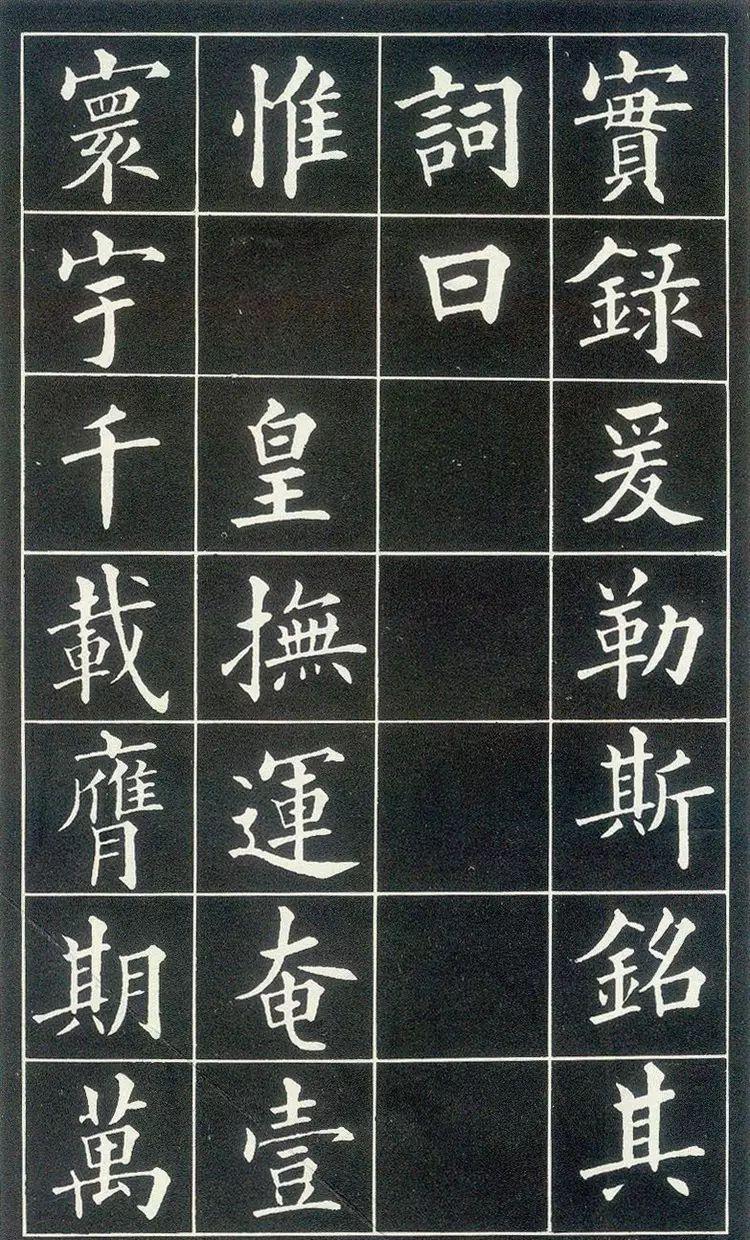 實錄爰勒斯銘其
詞曰
惟皇撫運奄壹
寰宇千載膺期萬